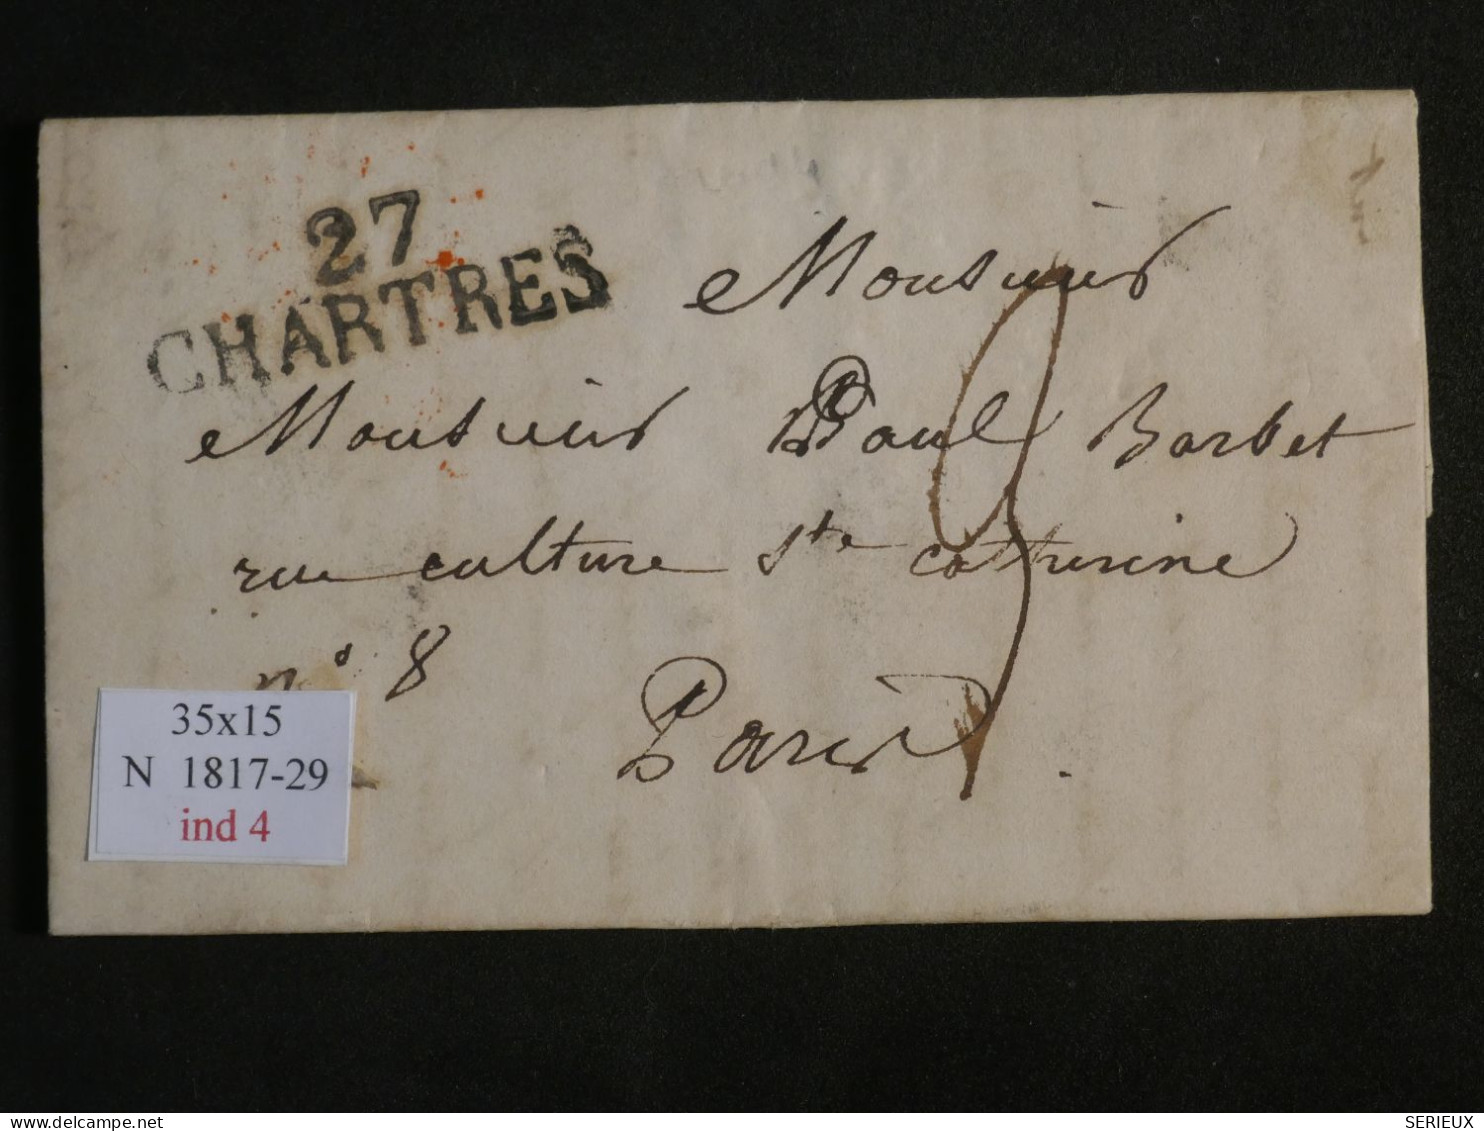 27
CHARTRES
Monsieur
Monsieur Paul Barbet
rue culture Ste catherine
n° 8
Paris
3
35x15
N 1817-29
ind 4
SERIEUX